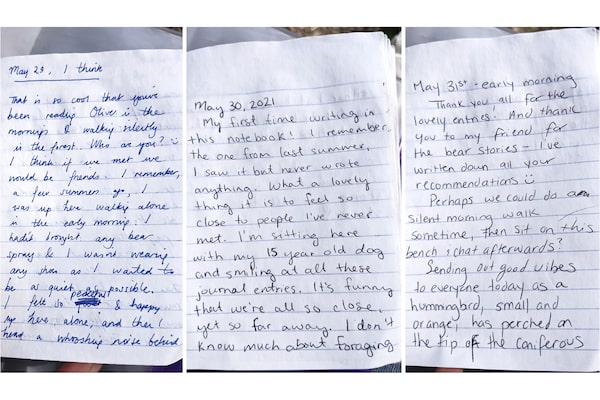 May 29, I think
That is so cool that you've
been reading Olive in the
mornings & walking silently
in the forest. Who are you? :)
I think if we met we
would be friends. I remember,
a few summers ago, I
was up here walking alone
in the early morning. I
hadn't brought any bear
spray & I wasn't wearing
any shoes as I wanted to
be as quiet as possible.
I felt so peaceful & happy
up here alone, and then I
heard a whooshing noise behind
May 30, 2021
My first time writing in
this notebook! I remember
the one from last summer,
I saw it but never wrote
anything. What a lovely
thing it is to feel so
close to people I've never
met. I'm sitting here
with my 15 year old dog
and smiling at all these
journal entries. It's funny
that we're all so close,
yet so far away. I don't
know much about foraging
May 31st - early morning
Thank you all for the
lovely entries! And thank
you to my friend for
the bear stories - I've
written down all your
recommendations :)
Perhaps we could do a
silent morning walk
sometime, then sit on this
bench & chat afterwards?
Sending out good vibes
to everyone today as a
hummingbird, small and
orange, has perched on
the tip of the coniferous